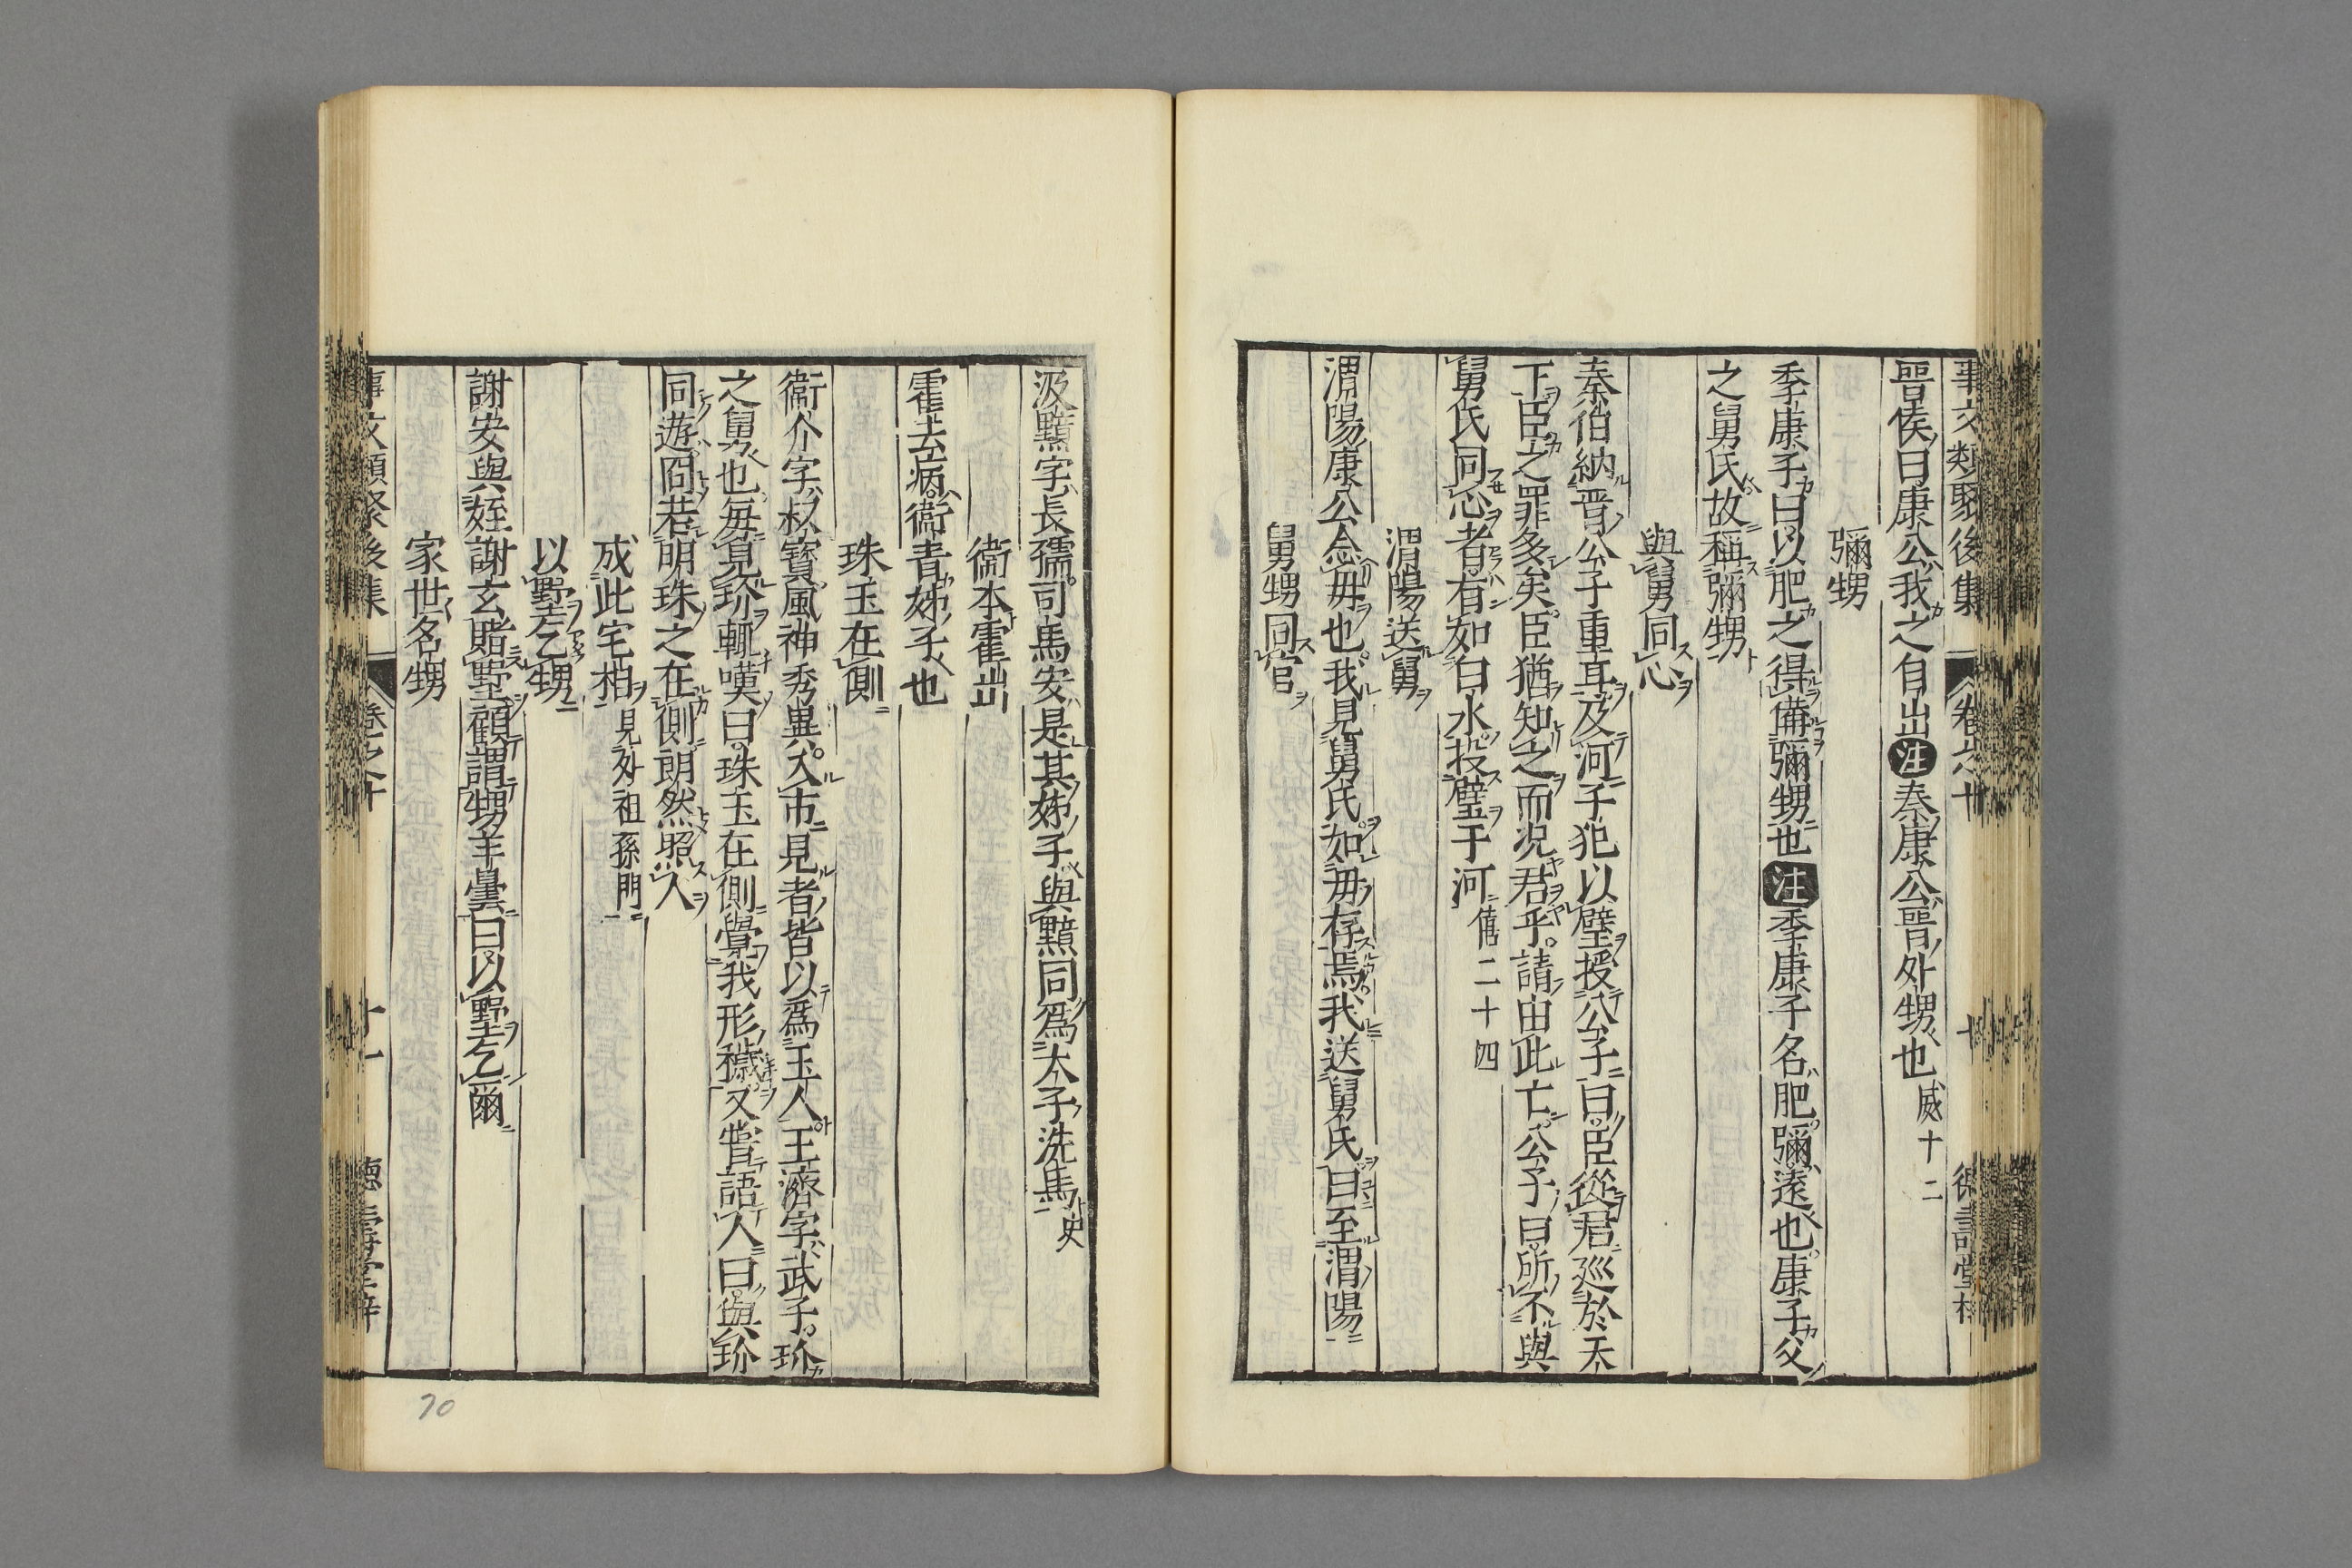 事文類聚後集 卷之十 十
晉侯曰康公我之自出注秦康公晉外甥也咸十二
彌甥
季康子曰以肥之得備彌甥也注季康子名肥彌遠也康子父
之舅氏故稱彌甥
與舅同心
秦伯納晋公子重耳及河子犯以璧授公子曰臣從君巡於天
下臣之罪多矣臣猶知之而况君乎請由此亡公子曰所不與
舅氏同心者有如白水投璧于河僖二十四
渭陽送舅
渭陽康公念母也我見舅氏如母存焉我送舅氏曰至渭陽
舅甥同官
汲黯字長孺司馬安是其姊子與黯同爲太子洗馬史
衞本霍出
霍去病衞青姊子也
珠玉在側
衞玠字叔寶風神秀異入市見者皆以爲玉人王濟字武子玠
之舅也毎見玠輙嘆曰珠玉在側覺我形穢又甞語人曰與玠
同遊冏若明珠之在側朗然照人
成此宅相見外祖孫門
以墅乞甥
謝安與姪謝玄賭墅顧謂甥羊曇曰以墅乞爾
家世名甥
事文類聚後集 卷之十 十一 德壽堂梓
70